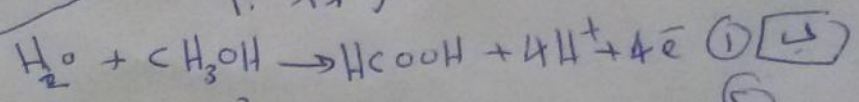 H₂O + CH₃OH → HCOOH + 4H⁺ + 4e⁻ ① ب